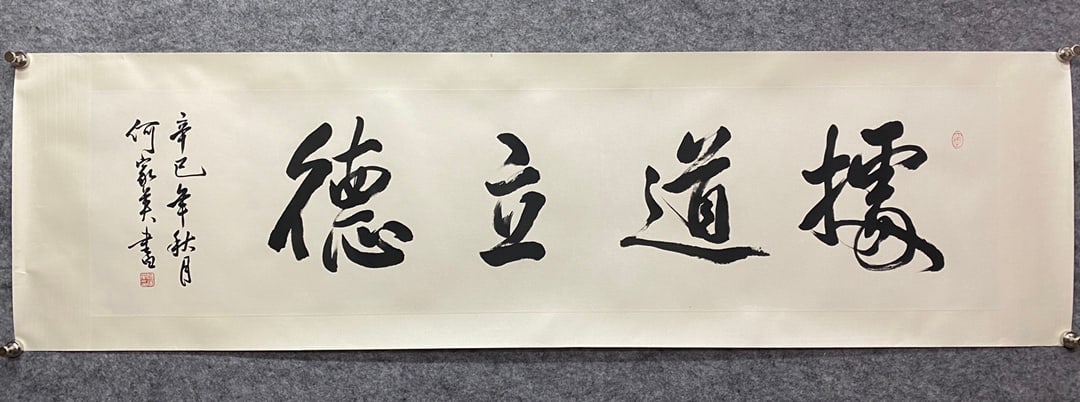 據道立德
辛巳年秋月
何家英書